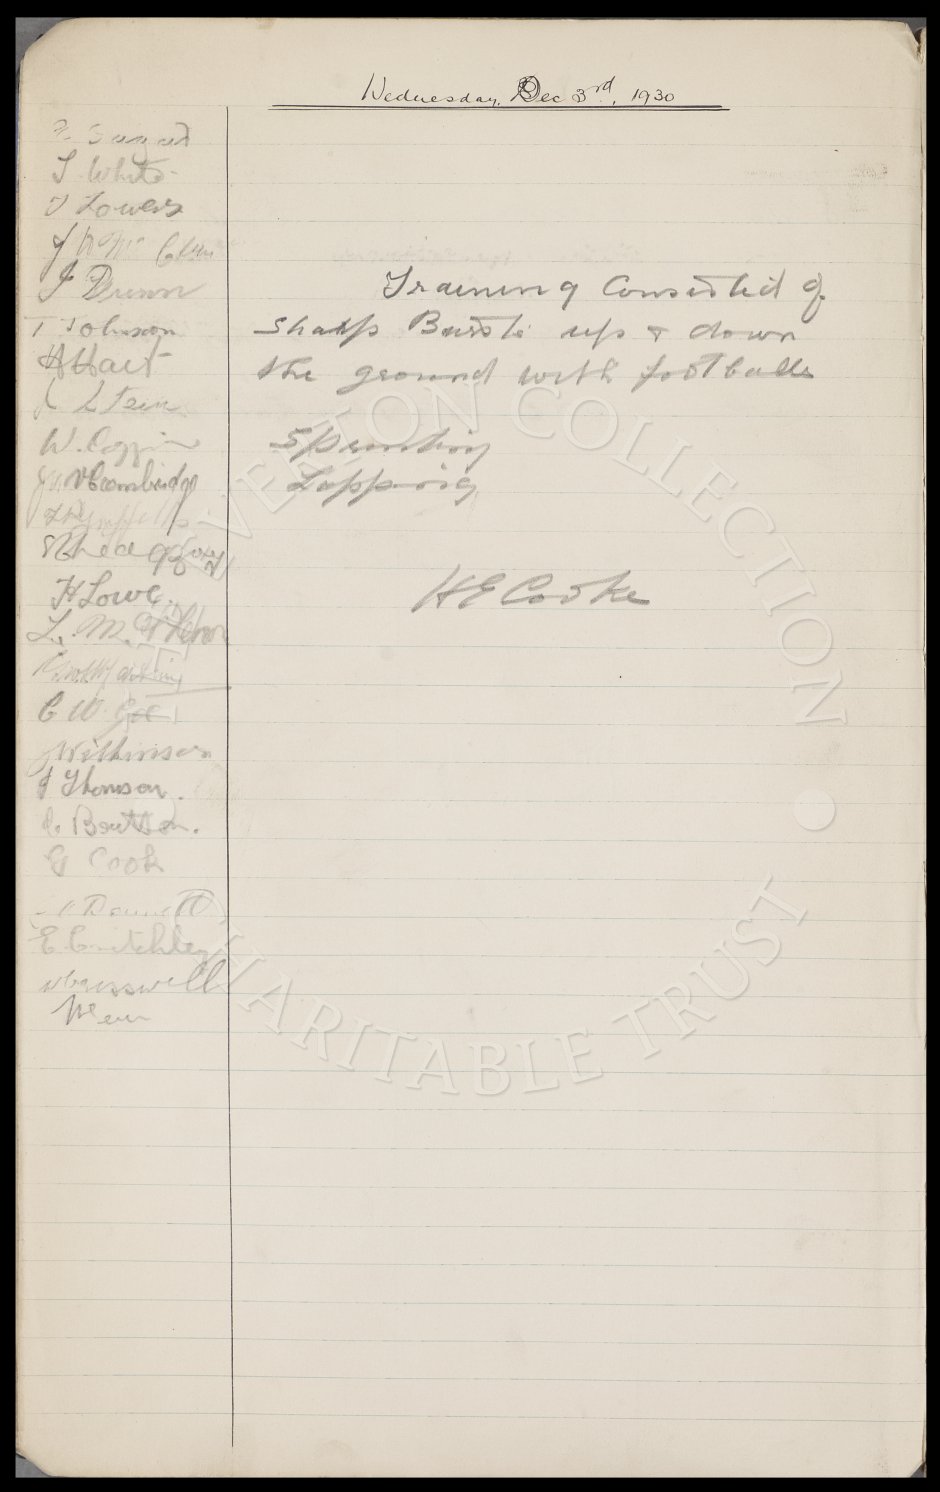 Wednesday, Dec 3rd, 1930
T. White
T Lowers
J Dunn
T Johnson
A Hart
J Stein
W. Coggins
Cambridge
H Lowe.
C W. Gee
Wilkinson
J Thomson.
C Bartton.
G Cook
E Critchley
Cresswell
Training Consisted of
Sharp Bursts up & down
the ground with footballs
Sprinting
Lapping
H E Cooke
THE EVERTON COLLECTION • CHARITABLE TRUST